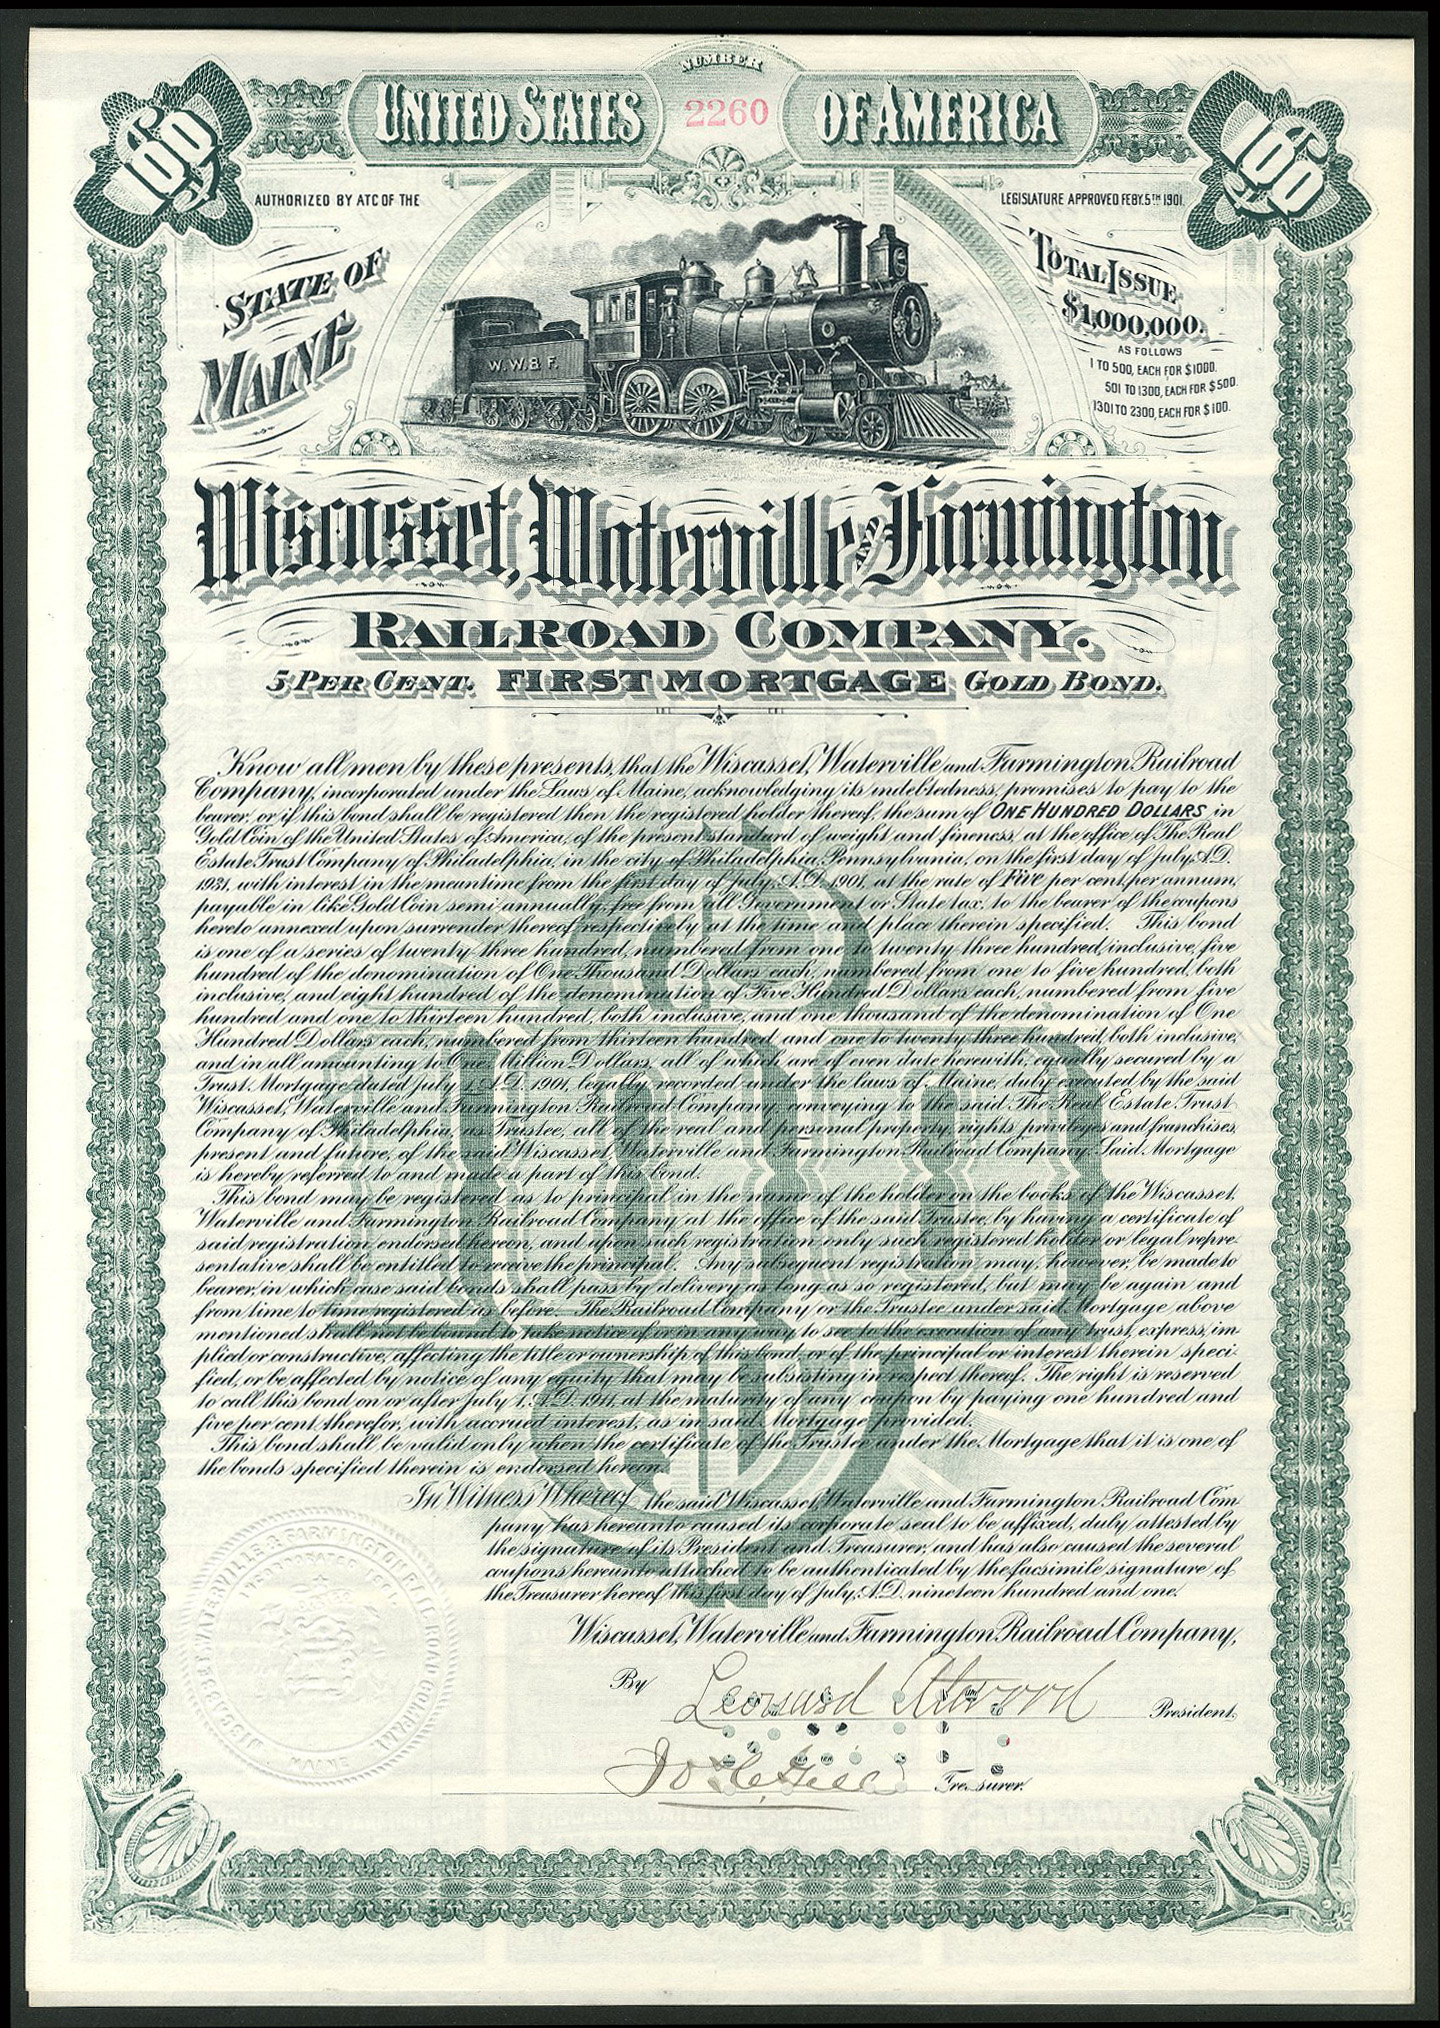 NUMBER
UNITED STATES 2260 OF AMERICA
100 100
AUTHORIZED BY ATC OF THE LEGISLATURE APPROVED FEBY. 5TH 1901.
STATE OF
MAINE
TOTAL ISSUE
$1,000,000.
AS FOLLOWS
1 TO 500, EACH FOR $1000.
501 TO 1300, EACH FOR $500.
1301 TO 2300, EACH FOR $100.
W. W. & F.
Wiscasset, Waterville AND Farmington
RAILROAD COMPANY.
5 PER CENT. FIRST MORTGAGE GOLD BOND.
Know all men by these presents, that the Wiscasset, Waterville and Farmington Railroad
Company, incorporated under the Laws of Maine, acknowledging its indebtedness, promises to pay to the
bearer, or if this bond shall be registered then the registered holder thereof, the sum of ONE HUNDRED DOLLARS in
Gold Coin of the United States of America, of the present standard of weight and fineness, at the office of The Real
Estate Trust Company of Philadelphia, in the city of Philadelphia, Pennsylvania, on the first day of July, A.D.
1931, with interest in the meantime from the first day of July, A.D. 1901, at the rate of Five per cent. per annum,
payable in like Gold Coin semi-annually, free from all Government or State tax, to the bearer of the coupons
hereto annexed upon surrender thereof respectively at the time and place therein specified. This bond
is one of a series of twenty three hundred, numbered from one to twenty three hundred, inclusive, five
hundred of the denomination of One Thousand Dollars each, numbered from one to five hundred, both
inclusive, and eight hundred of the denomination of Five Hundred Dollars each, numbered from five
hundred and one to thirteen hundred, both inclusive, and one thousand of the denomination of One
Hundred Dollars each, numbered from thirteen hundred and one to twenty three hundred, both inclusive,
and in all amounting to One Million Dollars, all of which are of even date herewith, equally secured by a
Trust Mortgage dated July 1, A.D. 1901, legally recorded under the laws of Maine, duly executed by the said
Wiscasset, Waterville and Farmington Railroad Company conveying to the said The Real Estate Trust
Company of Philadelphia, as Trustee, all of the real and personal property, rights, privileges and franchises,
present and future, of the said Wiscasset, Waterville and Farmington Railroad Company. Said Mortgage
is hereby referred to and made a part of this bond.
This bond may be registered as to principal in the name of the holder on the books of the Wiscasset,
Waterville and Farmington Railroad Company at the office of the said Trustee, by having a certificate of
said registration endorsed hereon, and upon such registration only such registered holder or legal repre-
sentative shall be entitled to receive the principal. Any subsequent registration may, however, be made to
bearer, in which case said bonds shall pass by delivery as long as so registered, but may be again and
from time to time registered as before. The Railroad Company or the Trustee under said Mortgage above
mentioned shall not be bound to take notice of or in any way to see to the execution of any trust, express, im-
plied or constructive, affecting the title or ownership of this bond, or of the principal or interest therein speci-
fied, or be affected by notice of any equity that may be subsisting in respect thereof. The right is reserved
to call this bond on or after July 1, A.D. 1911, at the maturity of any coupon by paying one hundred and
five per cent therefor, with accrued interest, as in said Mortgage provided.
This bond shall be valid only when the certificate of the Trustee under the Mortgage that it is one of
the bonds specified therein is endorsed hereon.
In Witness Whereof, the said Wiscasset, Waterville and Farmington Railroad Com-
pany has hereunto caused its corporate seal to be affixed, duly attested by
the signature of its President and Treasurer, and has also caused the several
coupons hereunto attached to be authenticated by the facsimile signature of
the Treasurer hereof this first day of July, A.D. nineteen hundred and one.
Wiscasset, Waterville and Farmington Railroad Company,
By Leonard Atwood President.
Treasurer.
WISCASSET, WATERVILLE & FARMINGTON RAILROAD COMPANY
INCORPORATED
MAINE
$100